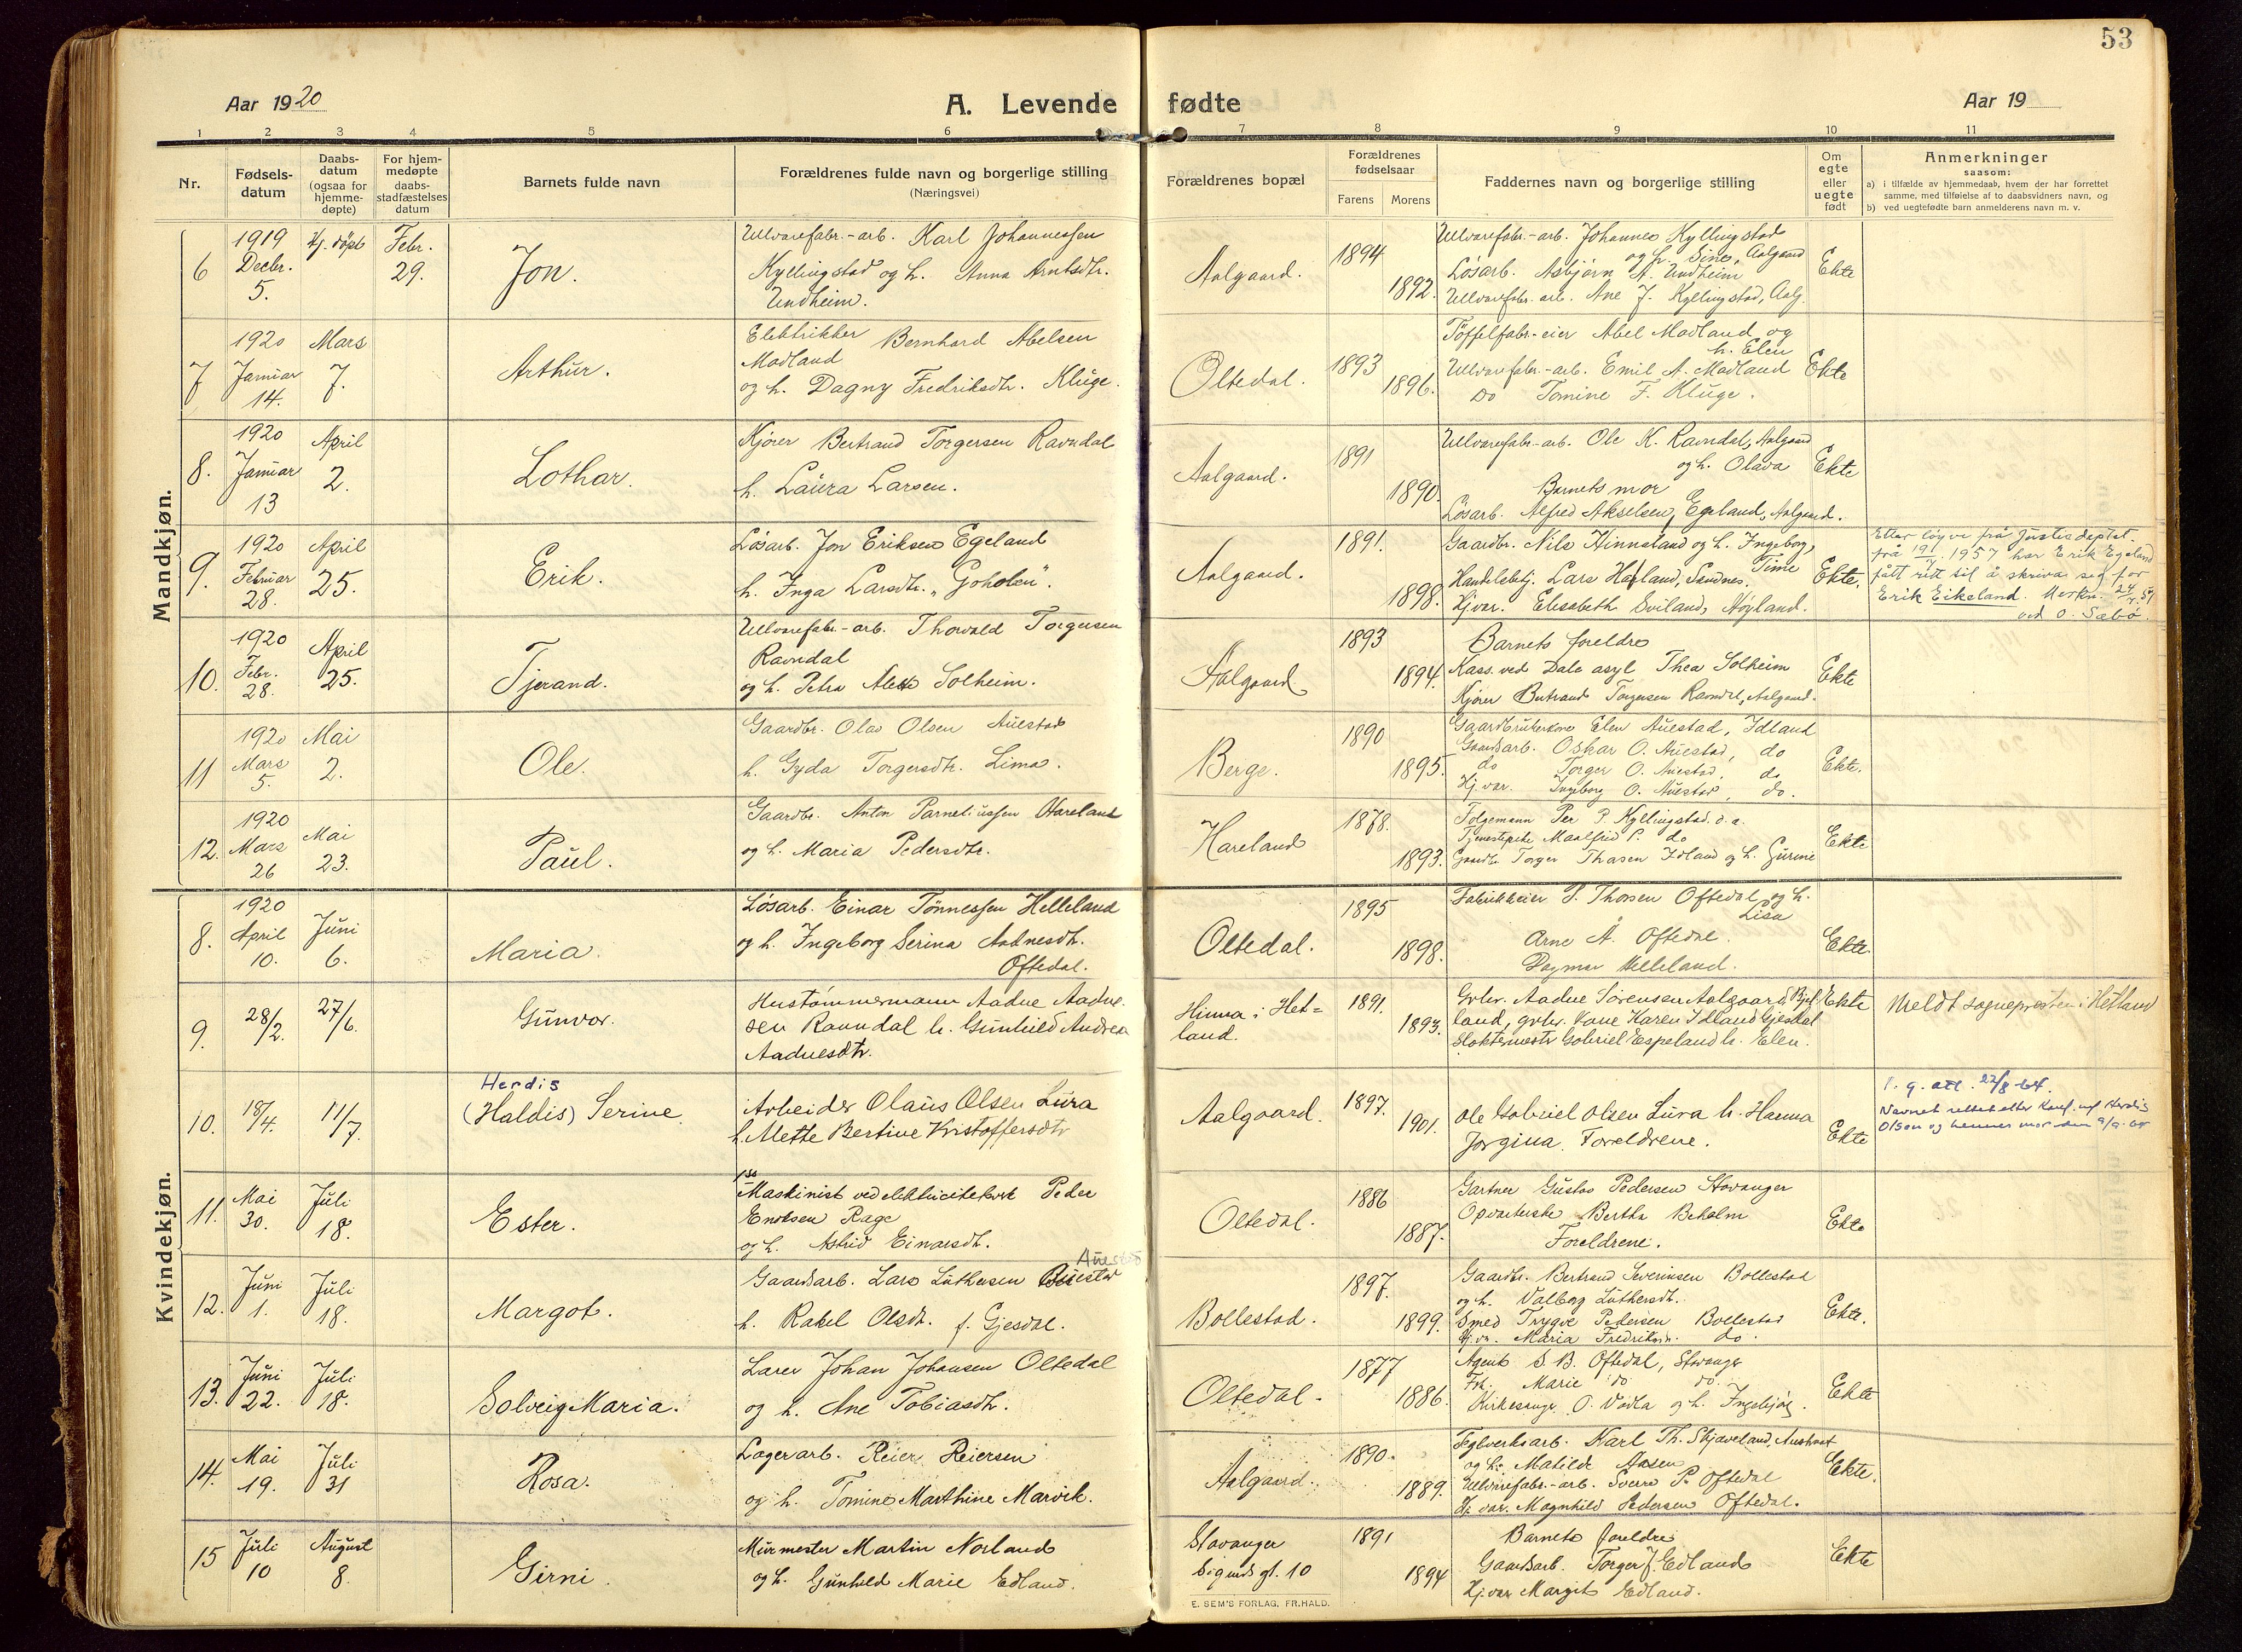 53
Aar 1920
A. Levende fødte
Aar 19
1 2 3 4 5 6 7 8 9 10 11
Nr.
Fødsels-
datum
Daabs-
datum
(ogsaa for
hjemme-
døpte)
For hjem-
medøpte
daabs-
stadfæstelses
datum
Barnets fulde navn
Forældrenes fulde navn og borgerlige stilling
(Næringsvei)
Forældrenes bopæl
Forældrenes
fødselsaar
Farens Morens
Faddernes navn og borgerlige stilling
Om
egte
eller
uegte
født
Anmerkninger
saasom:
a) i tilfælde av hjemmedaab, hvem der har forrettet
samme, med tilføielse af to daabsvidners navn, og
b) ved uegtefødte barn anmelderens navn m. v.
Mandkjøn.
6
1919
Decbr.
5.
Hj. døpt
Febr.
29.
Jon.
Uldvarefabr.-arb. Karl Johannessen
Kyllingstad og h. Anna Arntsdtr.
Undheim.
Aalgaard.
1894
1892.
Uldvarefabr.-arb. Johannes Kyllingstad
og h. Sine, Aalgaard
Løsarb. Asbjørn A. Undheim
Uldvarefabr. arb. Ane J. Kyllingstad, Aalg.
Ekte
7
1920
Januar
14.
Mars
7.
Arthur.
Elektrikker Bernhard Abelsen
Madland
og h. Dagny Fredriksdtr. Kluge.
Oltedal.
1893
1896.
Töffelfabr.-eier Abel Madland og
h. Elen
Uldvarefabr.-arb. Emil A. Madland
Do Tomine F. Kluge.
Ekte
8.
1920
Januar
13
April
2.
Lothar.
Kjører Bertrand Torgersen Ravndal
h. Laura Larsen.
Aalgaard.
1891
1890.
Uldvarefabr.-arb. Ole K. Ravndal, Aalgaard
og h. Olava
Barnets mor
Løsarb. Alfred Akselsen, Egeland, Aalgaard.
Ekte
9.
1920
Februar
28.
April
25.
Erik.
Løsarb. Jon Eriksen Egeland
h. Inga Larsdtr. "Goholen".
Aalgaard.
1891.
1898.
Gaardbr. Nils Hinnaland og h. Ingeborg,
Time
Handelsbetj. Lars Høiland, Sandnes.
Hj. var. Elisabeth Sviland, Høyland.
Ekte.
Etter løyve frå Justisdeptet.
frå 19/1 1957 har Erik Egeland
fått rett til å skriva seg for
Erik Eikeland. Merkn.
ved O. Sæbø.
10.
1920
Febr.
28.
April
25.
Tjerand.
Uldvarefabr.-arb. Thorvald Torgersen
Ravndal
og h. Petra Solheim.
Aalgaard
1893
1894.
Barnets foreldre
Kass. ved Dale asyl Thea Solheim
Kjører Bertrand Torgersen Ravndal, Aalgaard.
Ekte
11
1920
Mars
5.
Mai
2.
Ole.
Gaardbr. Olav Olsen Auestad
h. Gyda Torgersdtr. Lima.
Berge.
1890
1895.
Gaardbrukerkone Elen Auestad, Idland
Gaardsarb. Oskar O. Auestad, do
do Torger O. Auestad, do
Hj. var. Ingeborg O. Auestad, do.
Ekte.
12.
1920
Mars
26
Mai
23.
Paul.
Gaardbr. Anton Parneliussen Hareland
og h. Maria Pedersdtr.
Hareland
1878.
1893.
Per P. Kyllingstad.
Tjenestepike Maalfrid P. do
Gaardbr. Torger Thasen Idland og h. Gurine
Ekte
Kvindekjøn.
8.
1920
April
10.
Juni
6.
Maria.
Løsarb. Einar Tönnessen Helleland
og h. Ingeborg Serina Aadnesdtr.
Oftedal.
Oltedal.
1895
1898.
Fabrikkeier P. Thorsen Oftedal og h.
Lisa
Arne Å. Oftedal.
Dagmar Helleland.
Ekte.
9.
28/2.
27/6.
Gunvor.
Hustømmermann Aadne Aadne-
sen Ravndal h. Gunhild Andrea
Aadnesdtr.
Hinna i Het-
land.
1891.
1893.
Grbr. Aadne Sørensen Aalgaard,
land, grbr. kone Karen Idland Gjesdal
Slaktemestr Gabriel Espeland h. Elen.
Ekte
Meldt sognepresten i Hetland
10.
18/4.
11/7.
Herdis
(Haldis) Serine.
Arbeider Olaus Olsen Lura
h. Mette Bertine Kristoffersdtr
Aalgaard.
1897.
1901.
Ole Gabriel Olsen Lura h. Hanna
Jorgina. Foreldrene.
Ekte
Navnet rettet etter
Olsen og hennes mor
11.
Mai
30.
Juli
18.
Ester.
Maskinist ved elektricitetsverk Peder
Enoksen Rage
og h. Astrid Einarsdtr.
Oltedal.
1886
1887.
Gartner Gustav Pedersen Stavanger
Opvarterske Bertha Beholm
Foreldrene.
Ekte
12.
Juni
1.
Juli
18.
Margot.
Auestad
Gaardsarb. Lars Luthersen
h. Rakel Olsdtr. f. Gjesdal.
Bollestad.
1897.
1899.
Gaardbr. Bertrand Severinsen Bollestad
og h. Valborg Luthersdtr.
Smed Trygve Pedersen Bollestad
Hj. var. Maria Fredriksdtr. do.
Ekte.
13.
Juni
22.
Juli
18.
Solveig Maria.
Lærer Johan Johansen Oltedal
og h. Ane Tobiasdtr.
Oltedal.
1877
1886.
Agent S. B. Oftedal, Stavanger
Frk. Marie do do.
Kirkesanger O. Vadla og h. Ingebjørg.
Ekte
14.
Mai
19.
Juli
31
Rosa.
Lagerarb. Reier Reiersen
og h. Tomine Marthine Marvik.
Aalgaard.
1890.
1889.
Teglverksarb. Karl Th. Skjæveland, Austraat
og h. Matilde Aasen
Uldvarefabr.-arb. Sverre P. Oftedal
Hj. var. Magnhild Pedersen Oftedal.
Ekte.
15
Juli
10
August
8.
Girni.
Murmester Martin Norland
og h. Gunhild Marie Edland.
Stavanger
Sigurds gt. 10
1891
1894
Barnets foreldre
Gaardsarb. Torger J. Edland
Hj. var Margit Edland.
Ekte
E. SEM'S FORLAG, FR.HALD.